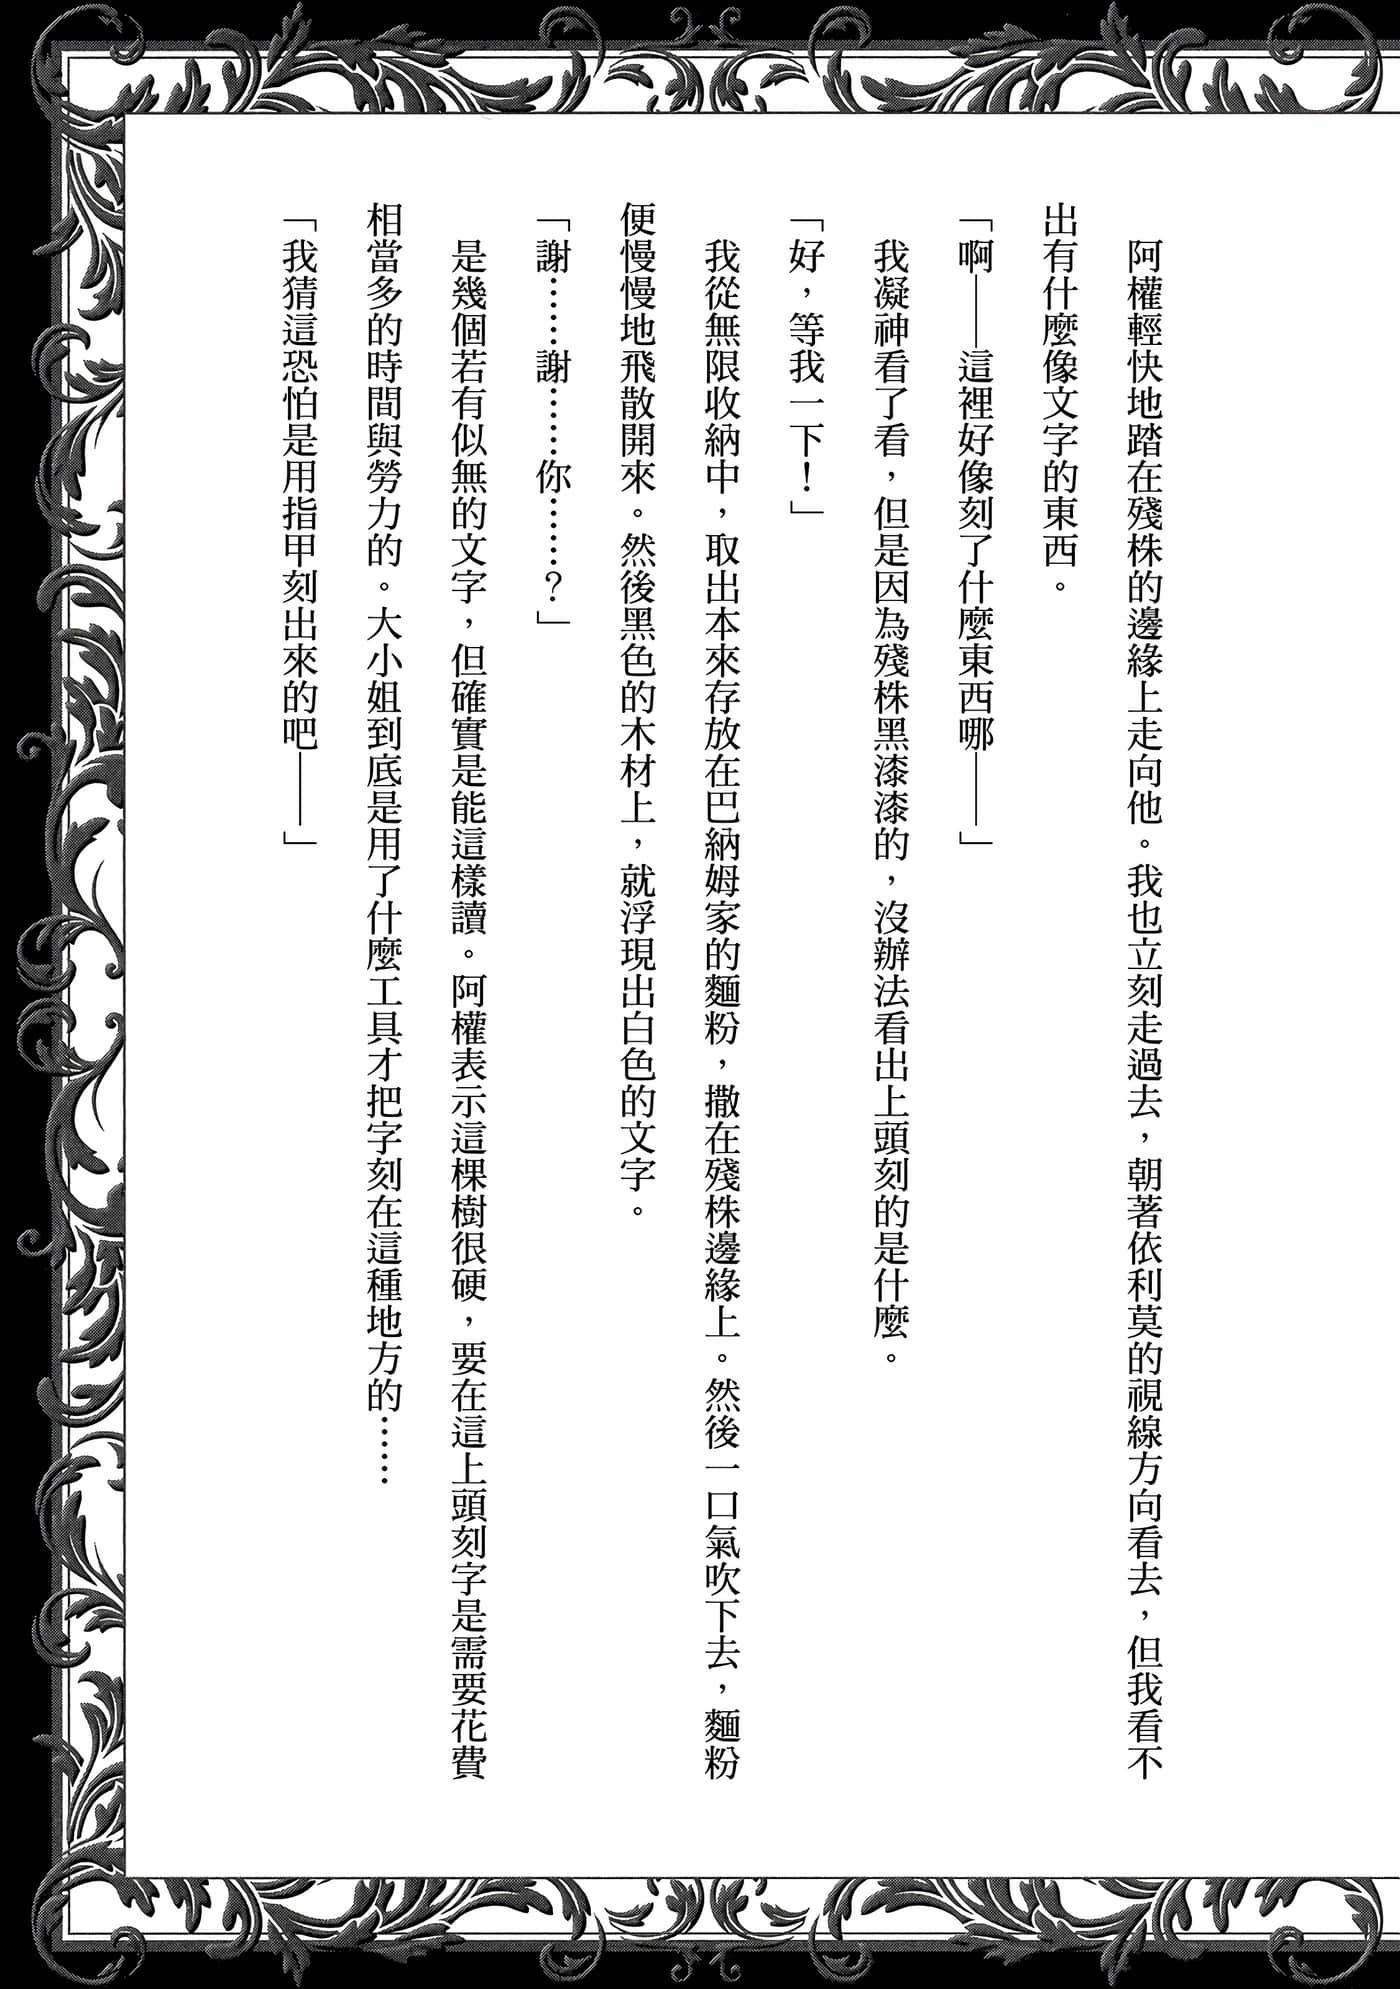 阿權輕快地踏在殘株的邊緣上走向他。我也立刻走過去，朝著依利莫的視線方向看去，但我看不
出有什麼像文字的東西。
「啊——這裡好像刻了什麼東西哪——」
我凝神看了看，但是因為殘株黑漆漆的，沒辦法看出上頭刻的是什麼。
「好，等我一下！」
我從無限收納中，取出本來存放在巴納姆家的麵粉，撒在殘株邊緣上。然後一口氣吹下去，麵粉
便慢慢地飛散開來。然後黑色的木材上，就浮現出白色的文字。
「謝……謝……你……？」
是幾個若有似無的文字，但確實是能這樣讀。阿權表示這棵樹很硬，要在這上頭刻字是需要花費
相當多的時間與勞力的。大小姐到底是用了什麼工具才把字刻在這種地方的……
「我猜這恐怕是用指甲刻出來的吧——」